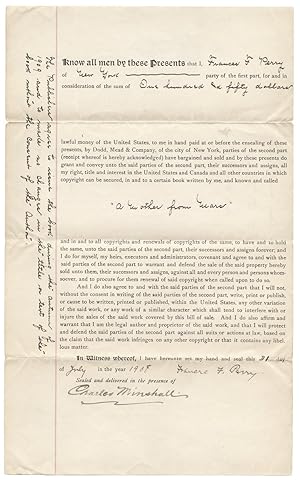 Know all men by these Presents that I, Frances F Perry
of New York party of the first part, for and in
consideration of the sum of One hundred & fifty dollars
lawful money of the United States, to me in hand paid at or before the ensealing of these
presents, by Dodd, Mead & Company, of the city of New York, parties of the second part
(receipt whereof is hereby acknowledged) have bargained and sold and by these presents do
grant and convey unto the said parties of the second part, their successors and assigns, all
my right, title and interest in the United States and Canada and all other countries in which
copyright can be secured, in and to a certain book written by me, and known and called
"A Mother from
and in and to all copyrights and renewals of copyrights of the same, to have and to hold
the same, unto the said parties of the second part, their successors and assigns forever; and
I do for myself, my heirs, executors and administrators, covenant and agree to and with the
said parties of the second part to warrant and defend the sale of said property hereby
sold unto them, their successors and assigns, against all and every person and persons whomso-
ever, and to procure for them renewal of said copyright when called upon to do so.
And I do also agree to and with the said parties of the second part that I will not,
without the consent in writing of the said parties of the second part, write, print or publish,
or cause to be written, printed or published, within the United States, any other variation
of the said work, or any work of a similar character which shall tend to interfere with or
injure the sales of the said work covered by this bill of sale. And I do also affirm and
warrant that I am the legal author and proprietor of the said work, and that I will protect
and defend the said parties of the second part against all suits or actions at law, based on
the claim that the said work infringes on any other copyright or that it contains any libel-
lous matter.
In Witness whereof, I have hereunto set my hand and seal this 31 day
of July in the year 1908 Frances F. Perry
Sealed and delivered in the presence of
Charles Minshall
The Publisher agrees to issue the book during the autumn of
1909 and to make no changes in the title or text of the
book without the consent of the author.